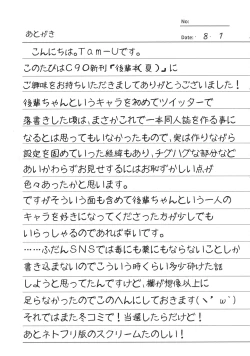 No:
Date: 8・7
あとがき
こんにちは。Tam-Uです。
このたびはC90新刊『後輩本(夏)』に
ご興味をお持ちいただきましてありがとうございました!
後輩ちゃんというキャラを初めてツイッターで
落書きした頃は、まさかこれで一本同人誌を作る事に
なるとは思ってもいなかったもので、実は作りながら
設定を固めていった経緯もあり、チグハグな部分など
あいかわらずお見せするにはお恥ずかしい点が
色々あったかと思います。
ですがそういう面も含めて後輩ちゃんという一人の
キャラを好きになってくださった方が少しでも
いらっしゃるのであれば幸いです。
……ふだんSNSでは毒にも薬にもならないことしか
書き込まないのでこういう時くらい多少砕けた話
しようと思ってたんですけど、欄が想像以上に
足らなかったのでこのへんにしておきます(ヽ'ω`)
それではまた冬コミで!当選したらだけど!
あとネトフリ版のスクリームたのしい!